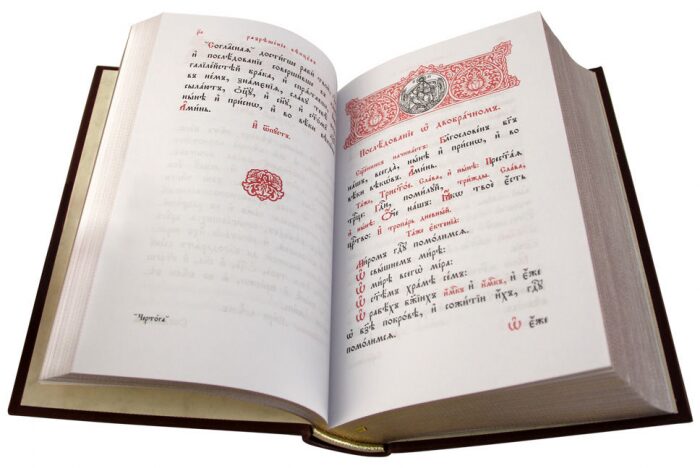 разрѣше́нїе вѣнцє́въ
*Согла́снаѧ дости́гше рабѝ
и҆ послѣ́дованїе соверши́вше
галїле́йстѣй бра́ка, и҆
въ не́мъ, зна́менїѧ, сла́вꙋ
сыла́ютъ, ѻ҆ц҃ꙋ̀, и҆ сн҃ꙋ, и҆
ны́нѣ и҆ при́снѡ, и҆ во вѣ́ки
А҆ми́нь.
И҆ ѿпꙋ́стъ.
*Черто́га
Послѣ́дованїе ѡ҆ двобра́чномъ.
Сщ҃е́нникъ начина́етъ: Благослове́нъ бг҃ъ
на́шъ, всегда̀, ны́нѣ и҆ при́снѡ, и҆ во
вѣ́ки вѣкѡ́въ. А҆ми́нь.
Та́же, Трист҃о́е. Сла́ва, и҆ ны́нѣ: Прест҃а́ѧ
трⷪ҇це: Гдⷭ҇и, поми́лꙋй, три́жды. Сла́ва,
и҆ ны́нѣ: Ѻ҆́ч҃е на́шъ: Ꙗ҆́кѡ твоѐ є҆́сть
црⷭ҇тво: И҆ тропа́рь дне́вный.
Та́же є҆ктенїа̀:
Ми́ромъ гдⷭ҇ꙋ помо́лимсѧ.
Ѡ҆ свы́шнемъ ми́рѣ:
Ѡ҆ ми́рѣ всегѡ̀ мі́ра:
Ѡ҆ ст҃ѣ́мъ хра́мѣ се́мъ:
Ѡ҆ рабѣ́хъ бж҃їихъ и҆́м҃къ и҆ и҆́м҃къ, и҆ є҆́же
ѡ҆ бз҃ѣ покро́вѣ, и҆ сожи́тїи и҆́хъ, гдⷭ҇ꙋ
помо́лимсѧ.
Ѡ҆ є҆́же